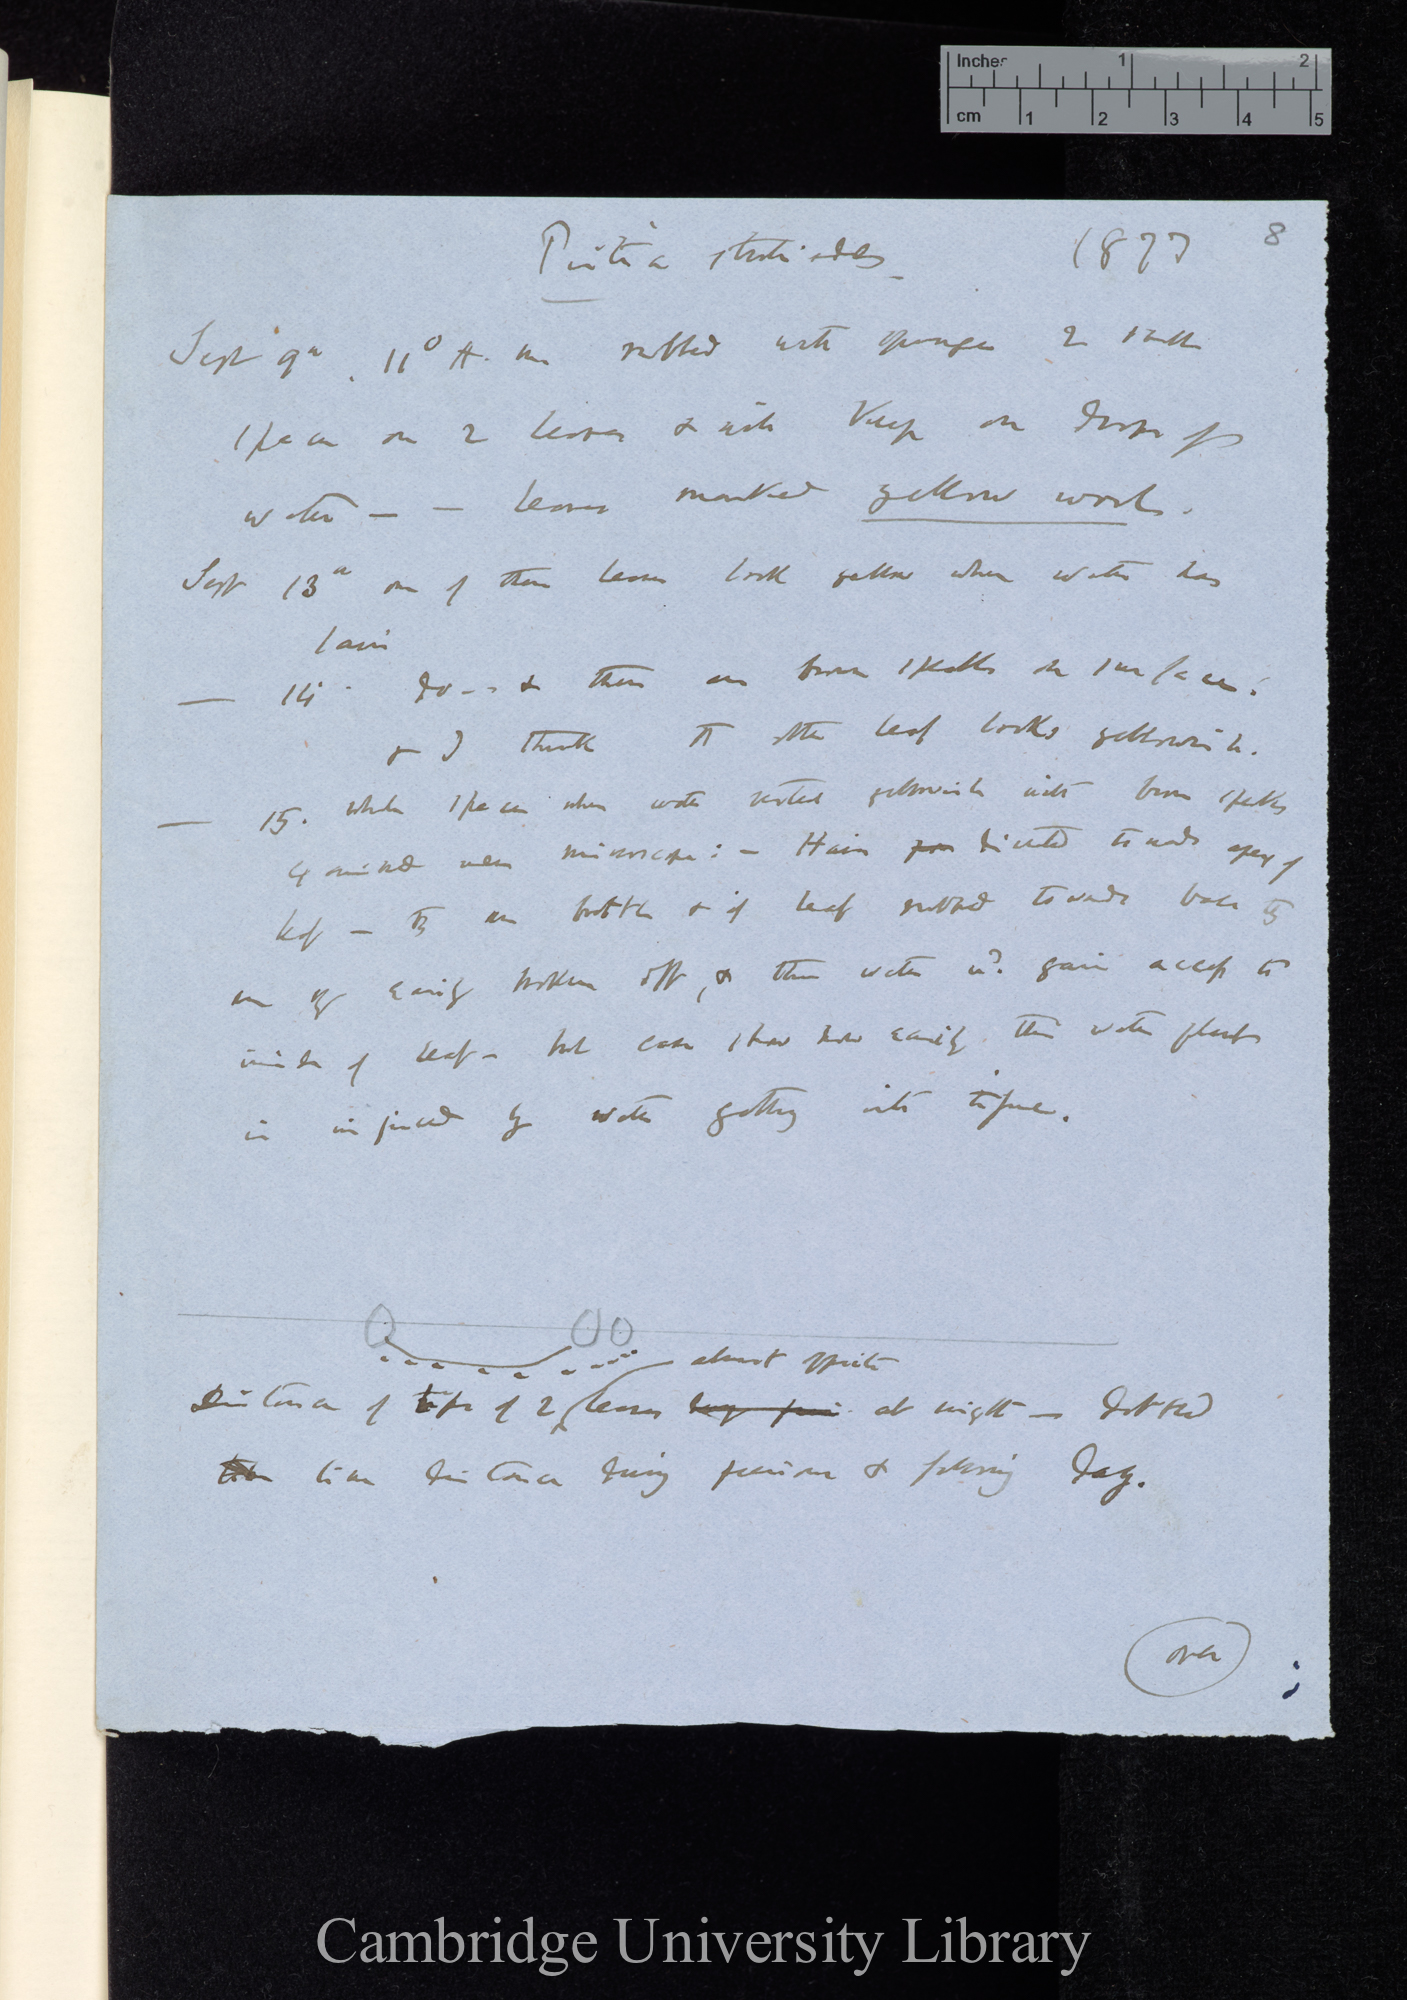 Inches 1 2
cm 1 2 3 4 5
Pistia stratiodes 1877 8
Sept 9th. 11° A. m rubbed with sponge 2 small
space on 2 leaves & will keep on drops of
water — — leaves marked yellow wool.
Sept 13th one of these leaves look yellow where water has
lain
— 14 do — & there are brown specks on surface.
& I think the other leaf looks yellowish.
— 15. whole space where water rested yellowish with brown specks
examined under microscope: — Hairs directed towards apex of
leaf — They are brittle & if leaf rubbed towards base they
are very easily broken off, & then water wd. gain access to
inside of leaf — but case shows how easily this water plant
is injured by water getting into tissue.
almost opposite
Distance of tips of 2 leaves at night — dotted
line distance during previous & following day.
over
Cambridge University Library